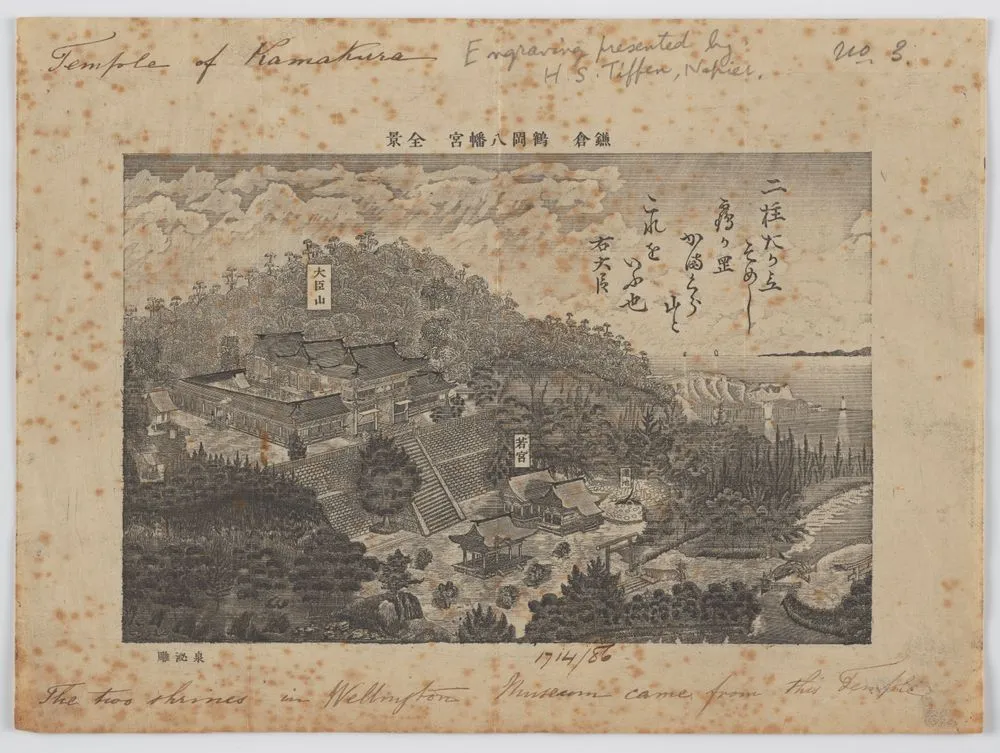 Temple of Kamakura
Engraving presented by
H S. Tiffen, Napier.
No 3.
鎌倉 鶴岡八幡宮 全景
二柱たか立
そめし
鶴か岡
かまくら
山と
これを
いふ也
右大臣
大臣山
若宮
泉泌雕
1714/86
The two shrines in Wellington Museum came from this Temple